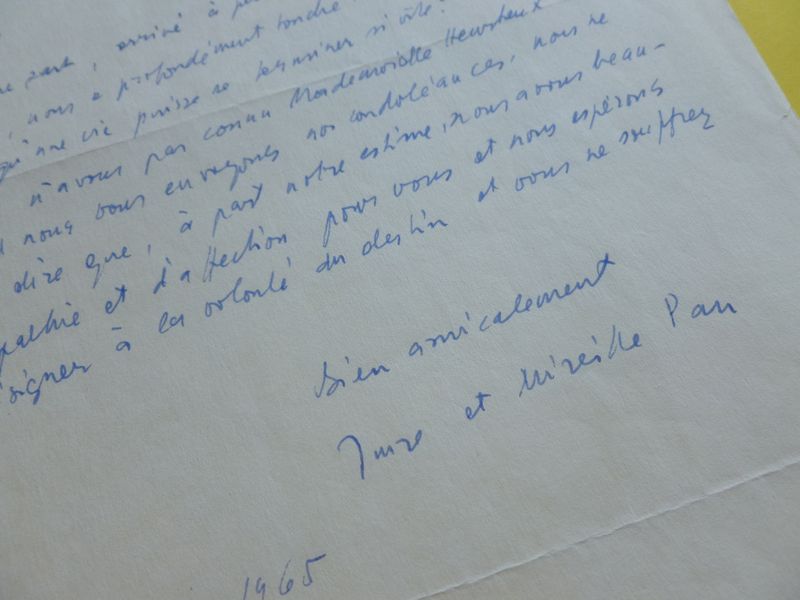 arrivé à
nous a profondément
qu'une vie puisse se terminer si vite.
n'avons pas connu Mademoiselle
nous vous envoyons nos condoléances, nous ne
dire que, à part notre estime, nous avons beau-
pathie et d'affection pour vous et nous espérons
signer à la volonté du destin et vous ne souffrez
Bien amicalement
et Mireille Pan
1965